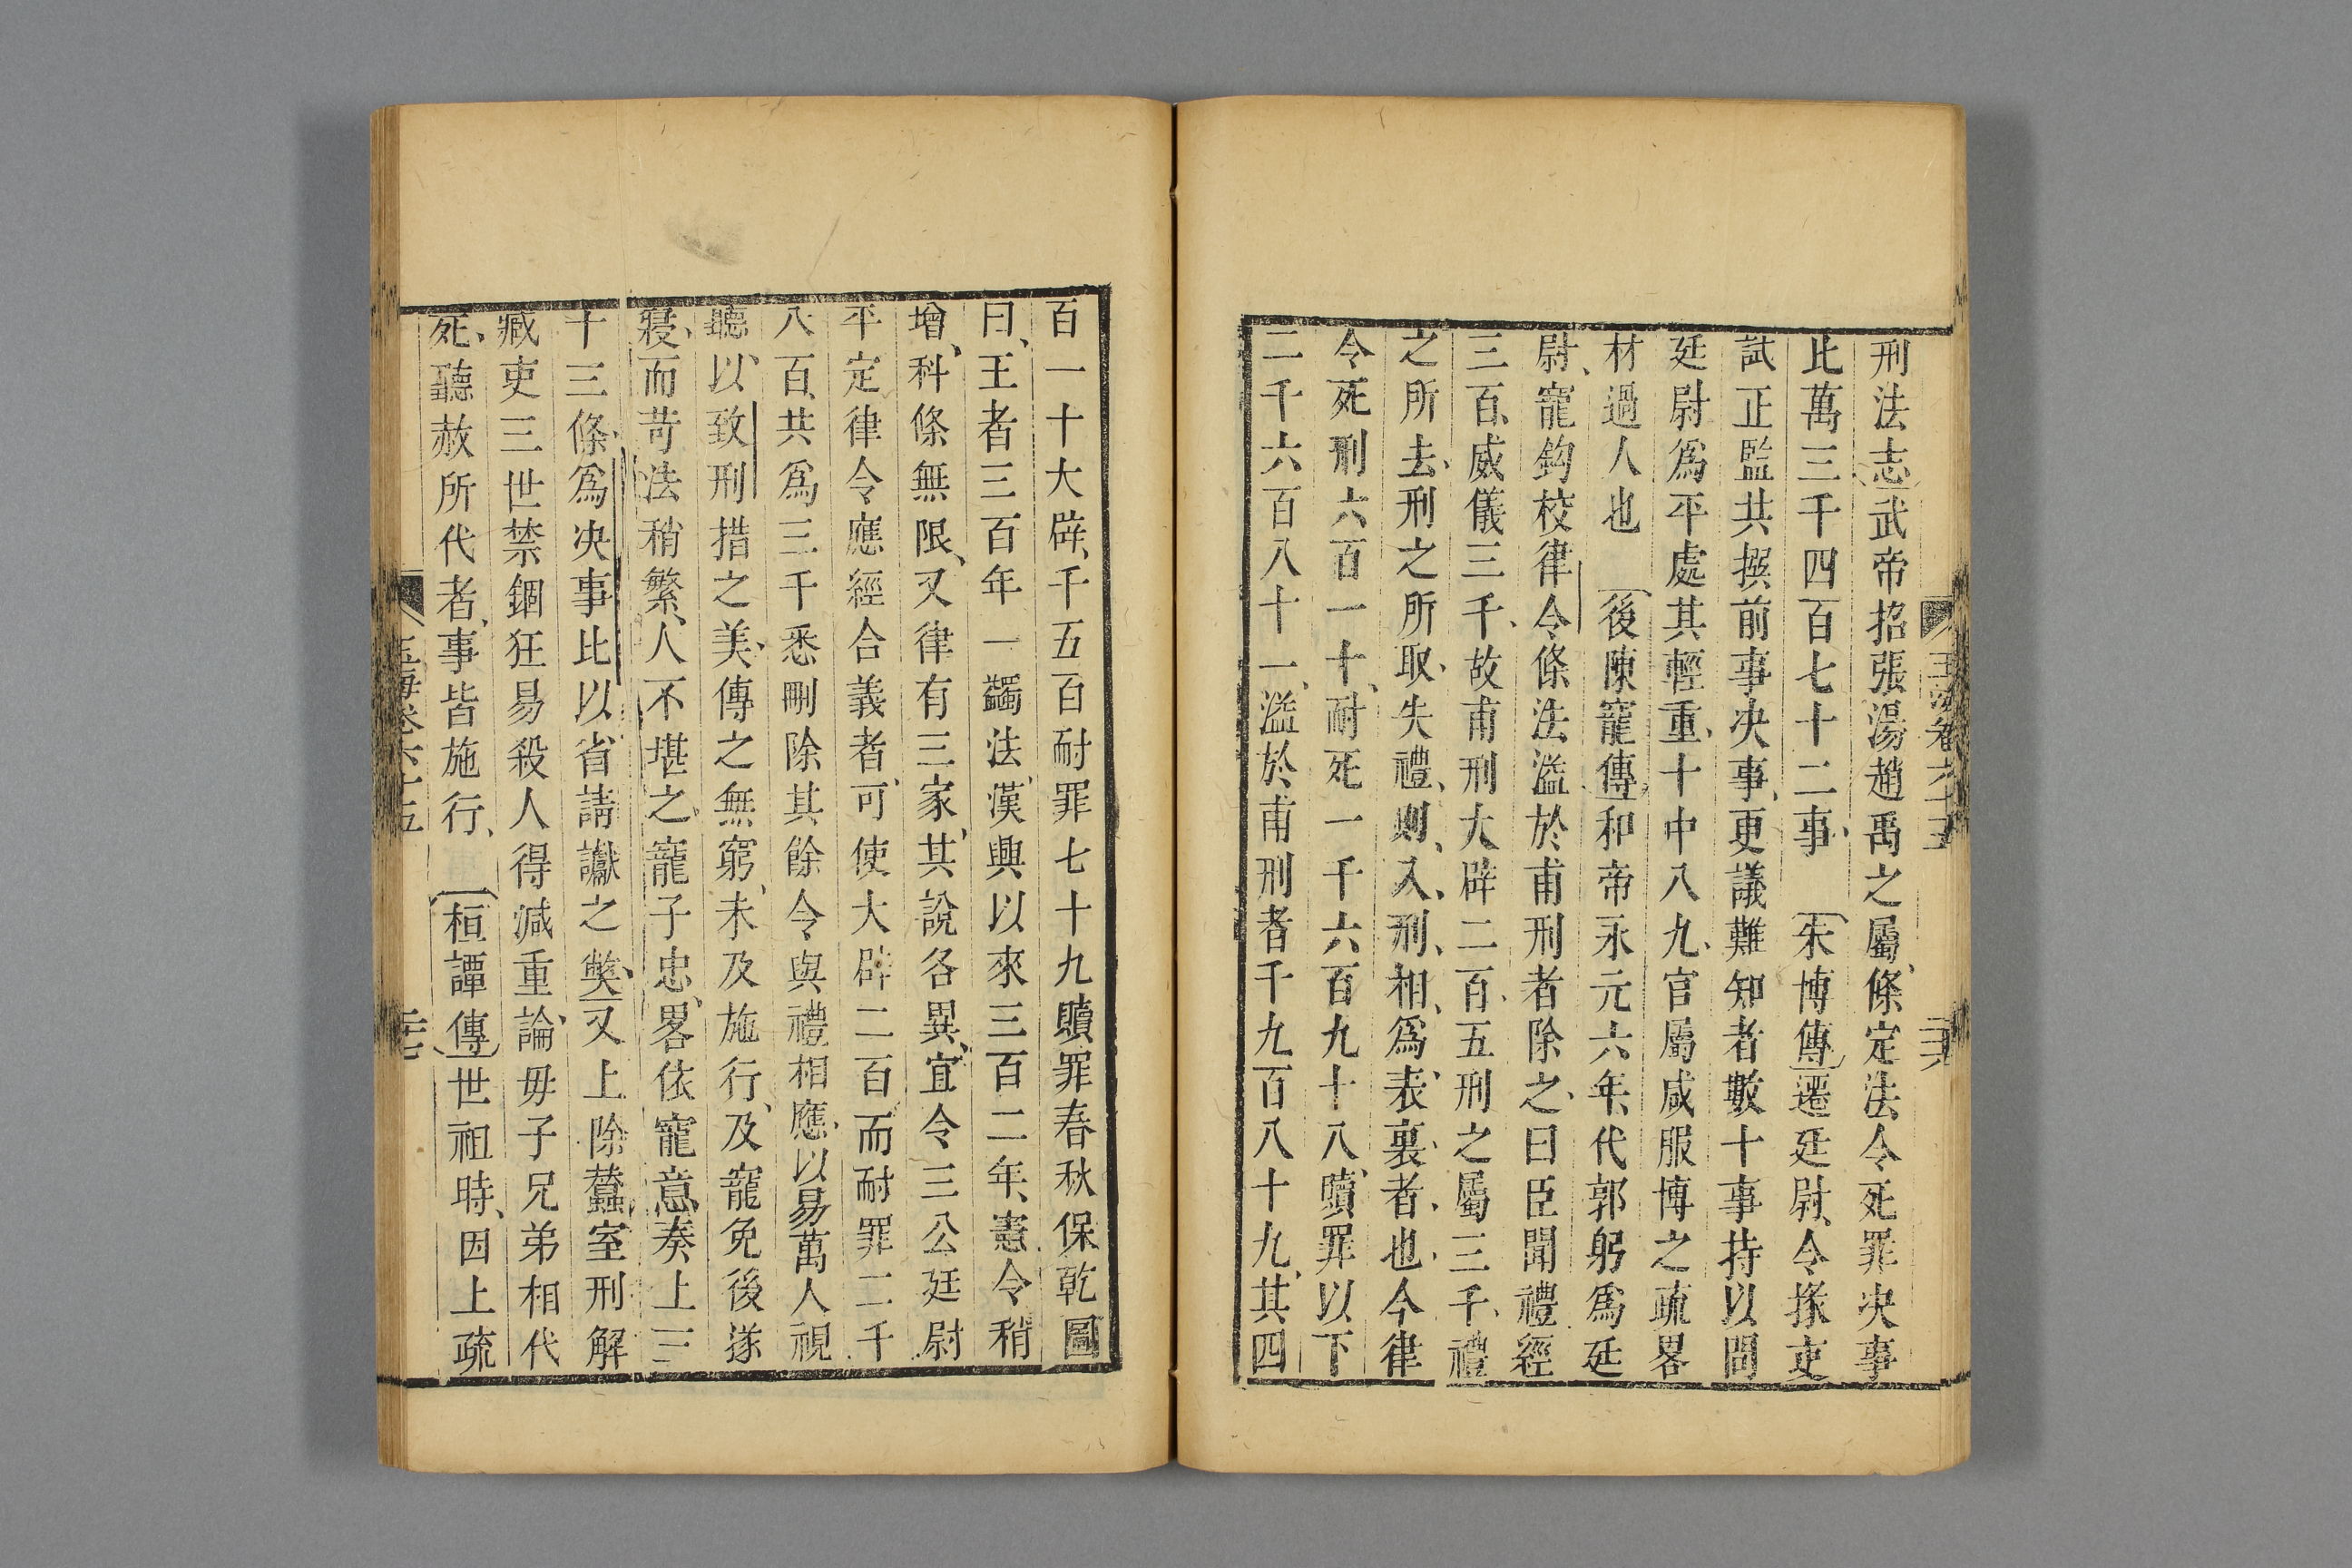 刑法志武帝招張湯趙禹之屬條定法令死罪決事
比萬三千四百七十二事 朱博傳遷廷尉令掾吏
試正監共撰前事決事更議難知者數十事持以問
廷尉爲平處其輕重十中八九官屬咸服博之疏畧
材過人也 後陳寵傳和帝永元六年代郭躬爲廷
尉寵鈎校律令條法溢於甫刑者除之曰臣聞禮經
三百威儀三千故甫刑大辟二百五刑之屬三千禮
之所去刑之所取失禮則入刑相爲表裏者也今律
令死刑六百一十耐死一千六百九十八贖罪以下
二千六百八十一溢於甫刑者千九百八十九其四
百一十大辟千五百耐罪七十九贖罪春秋保乾圖
曰王者三百年一蠲法漢興以來三百二年憲令稍
增科條無限又律有三家其說各異宜令三公廷尉
平定律令應經合義者可使大辟二百而耐罪二千
八百共爲三千悉刪除其餘令與禮相應以易萬人視
聽以致刑措之美傳之無窮未及施行及寵免後遂
寑而苛法稍繁人不堪之寵子忠畧依寵意奏上三
十三條爲決事比以省請讞之獘又上除蠶室刑解
臧吏三世禁錮狂易殺人得減重論毋子兄弟相代
死聽赦所代者事皆施行 桓譚傳世祖時因上疏
玉海卷六十五